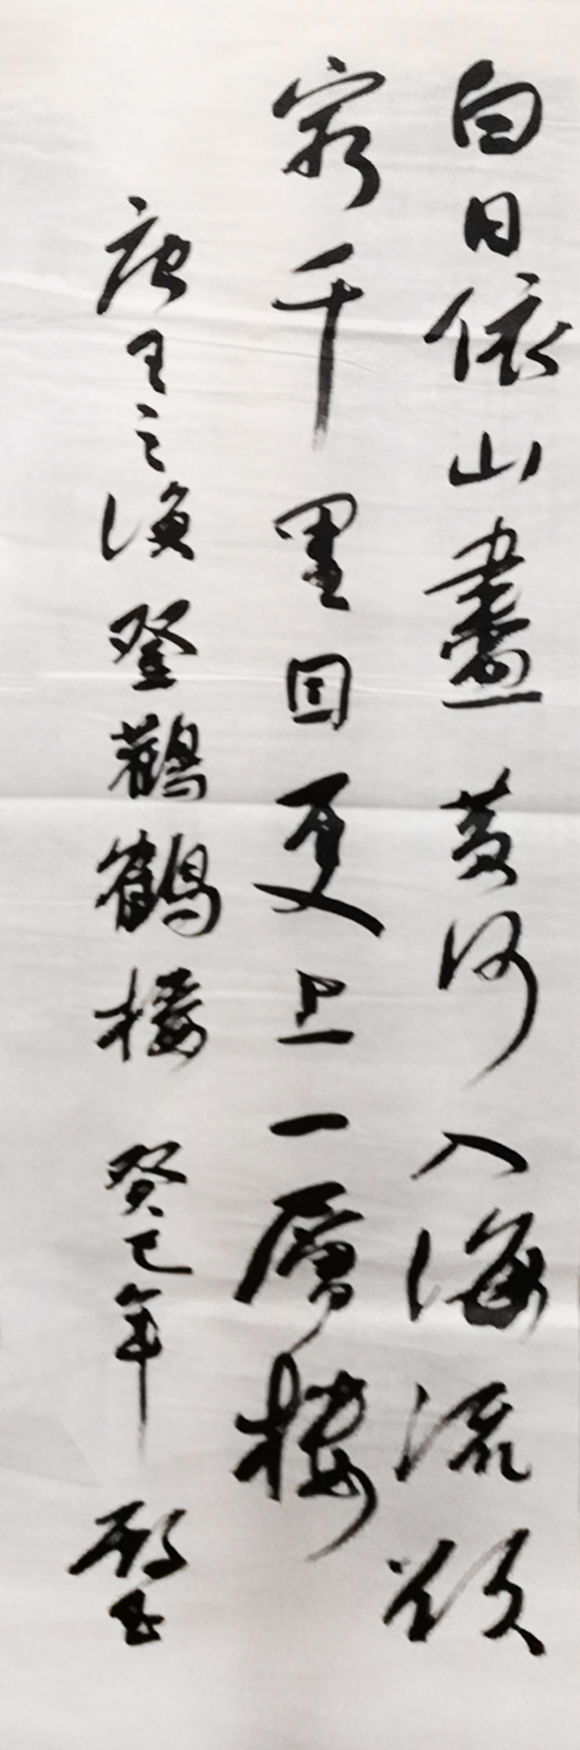 白日依山盡黃河入海流欲
窮千里目更上一層樓
唐王之渙登鸛鶴樓 癸巳年